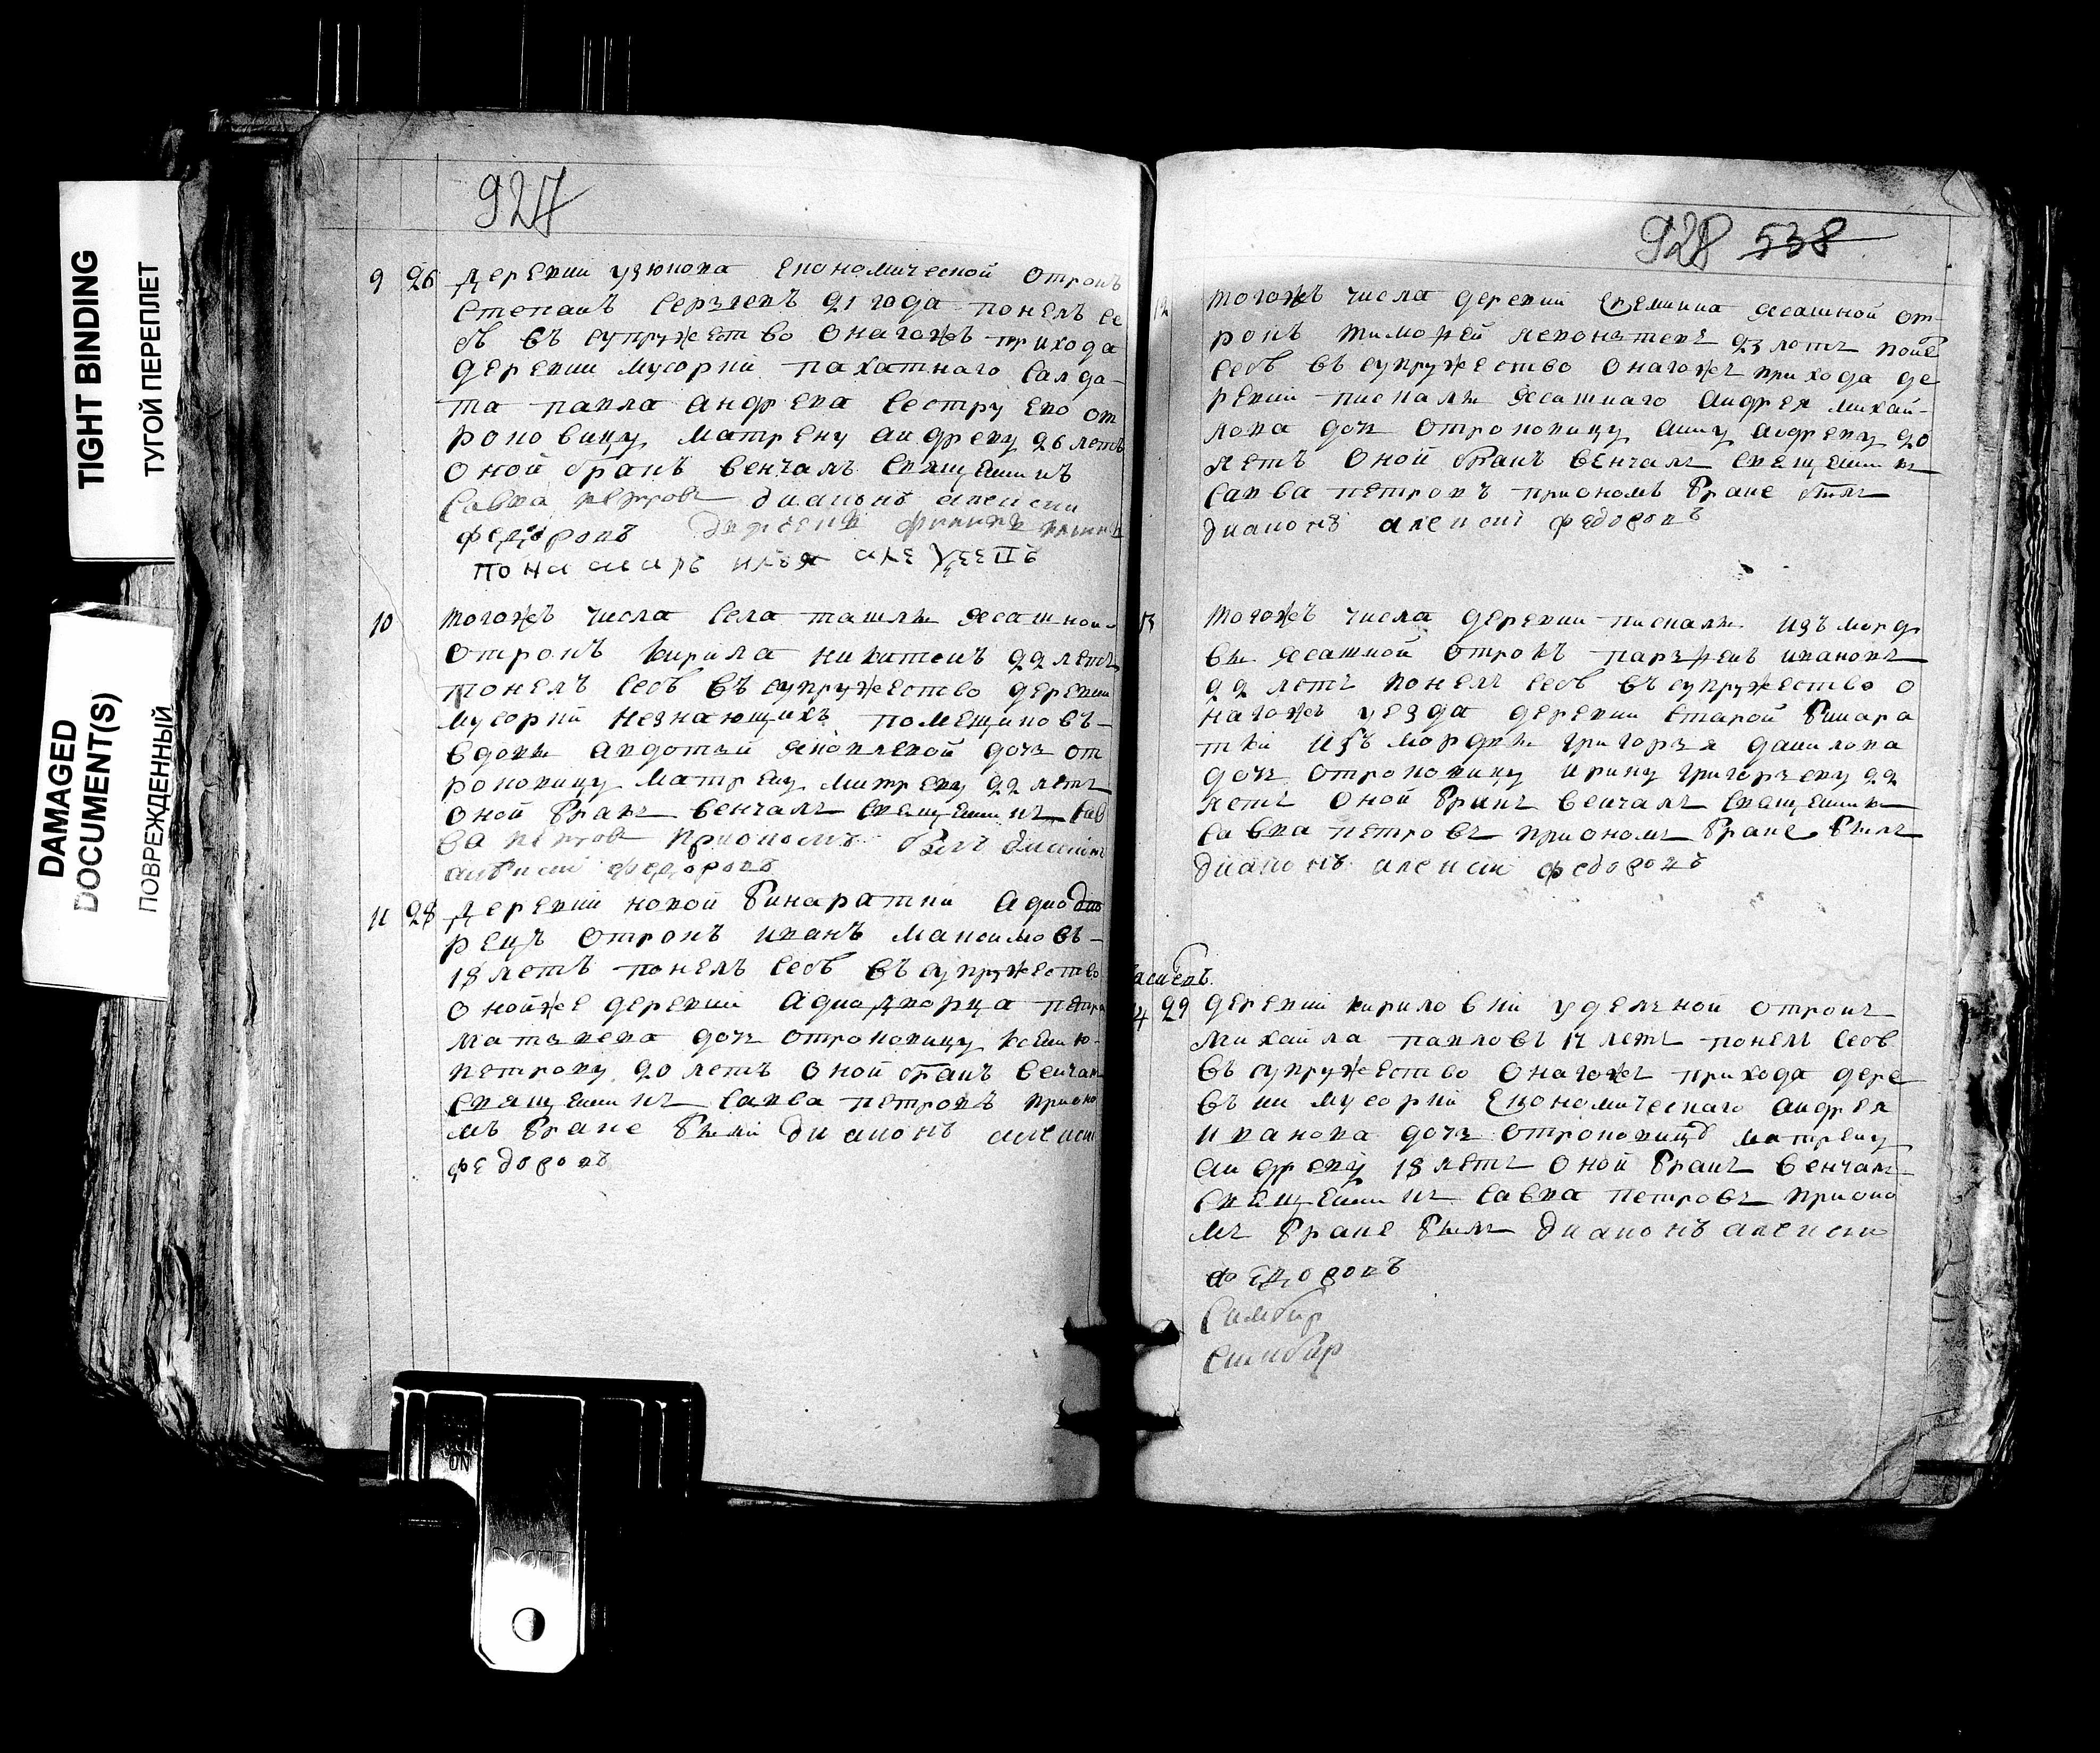 TIGHT BINDING
ТУГОЙ ПЕРЕПЛЕТ
DAMAGED
DOCUMENT(S)
ПОВРЕЖДЕННЫЙ
927
9 26 деревни узюкова економической отрокъ
степанъ сергеевъ 21 года понелъ се
бѣ въ супружество онагожъ прихода
деревни мусорки пахатнаго салда-
та павла андреева сестру ево от
роковицу матрену андрееву 26 летъ
оной бракъ венчалъ священникъ
савва петровъ диаконъ алексеи
федоровъ
понамарь илья алексеевъ
10 тогожъ числа села ташлы ясашной
отрокъ кирила никитинъ 22 летъ
понелъ себѣ въ супружество деревни
мусорки незнающихъ помещиковъ-
вдовы авдотьи яковлевой дочь от
роковицу матрену 22 летъ
оной бракъ венчалъ священникъ сав
ва петровъ приономъ былъ диаконъ
алексеи федоровъ
11 28 деревни новой бинаратки аднодво
рецъ отрокъ иванъ максимовъ-
18 летъ понелъ себѣ въ супружество
онойже деревни аднодворца петра
матвеева дочь отроковицу
петрову 20 летъ оной бракъ венчалъ
священникъ савва петровъ приено
мъ браке были диаконъ алексеи
федоровъ
928 538
12 тогожъ числа деревни еремкина ясашной от-
рокъ тимофей 23 летъ понелъ
себѣ въ супружество онагожъ прихода де
ревни пискалы ясашнаго андрея михай-
лова дочь отроковицу анну андрееву 20
летъ оной бракъ венчалъ священникъ
савва петровъ приономъ браке былъ
диаконъ алексеи федоровъ
13 тогожъ числа деревни пискалы изъ морд
вы ясашной отрокъ парфенъ ивановъ
22 летъ понелъ себѣ въ супружество о
нагожъ уезда деревни старой бинара
тки изъ мордвы григорья данилова
дочь отроковицу ирину григорьеву 22
летъ оной бракъ венчалъ священникъ
савва петровъ приономъ браке былъ
диаконъ алексеи федоровъ
29 деревни кириловки удельной отрокъ
михайла павловъ 17 летъ понелъ себѣ
въ супружество онагожъ прихода дере
въни мусорки економическаго андрея
иванова дочь отроковицу матрену
андрееву 18 летъ оной бракъ венчалъ
священникъ савва петровъ прионо
мъ браке былъ диаконъ алексеи
федоровъ
Симбир